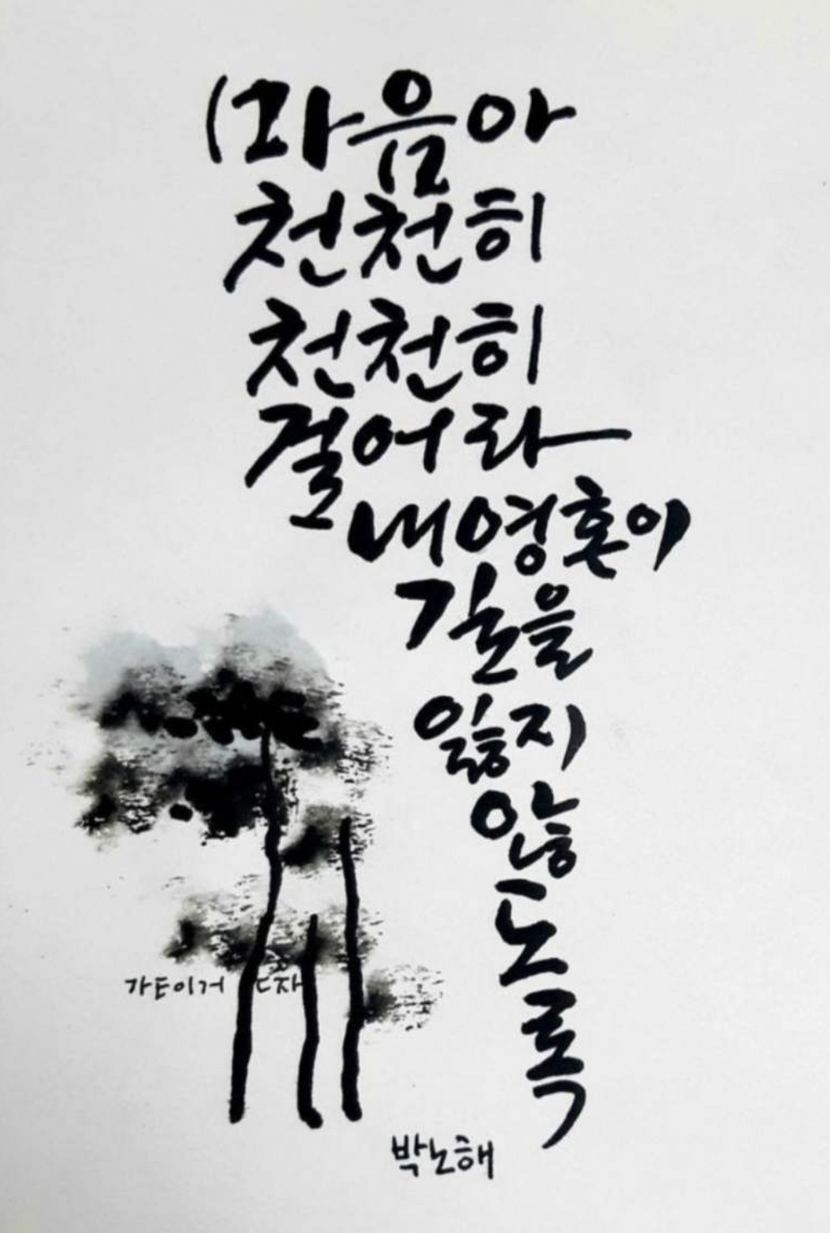 마음아
천천히
천천히
걸어라
내 영혼이
길을
잃지
않
도
록
박노해